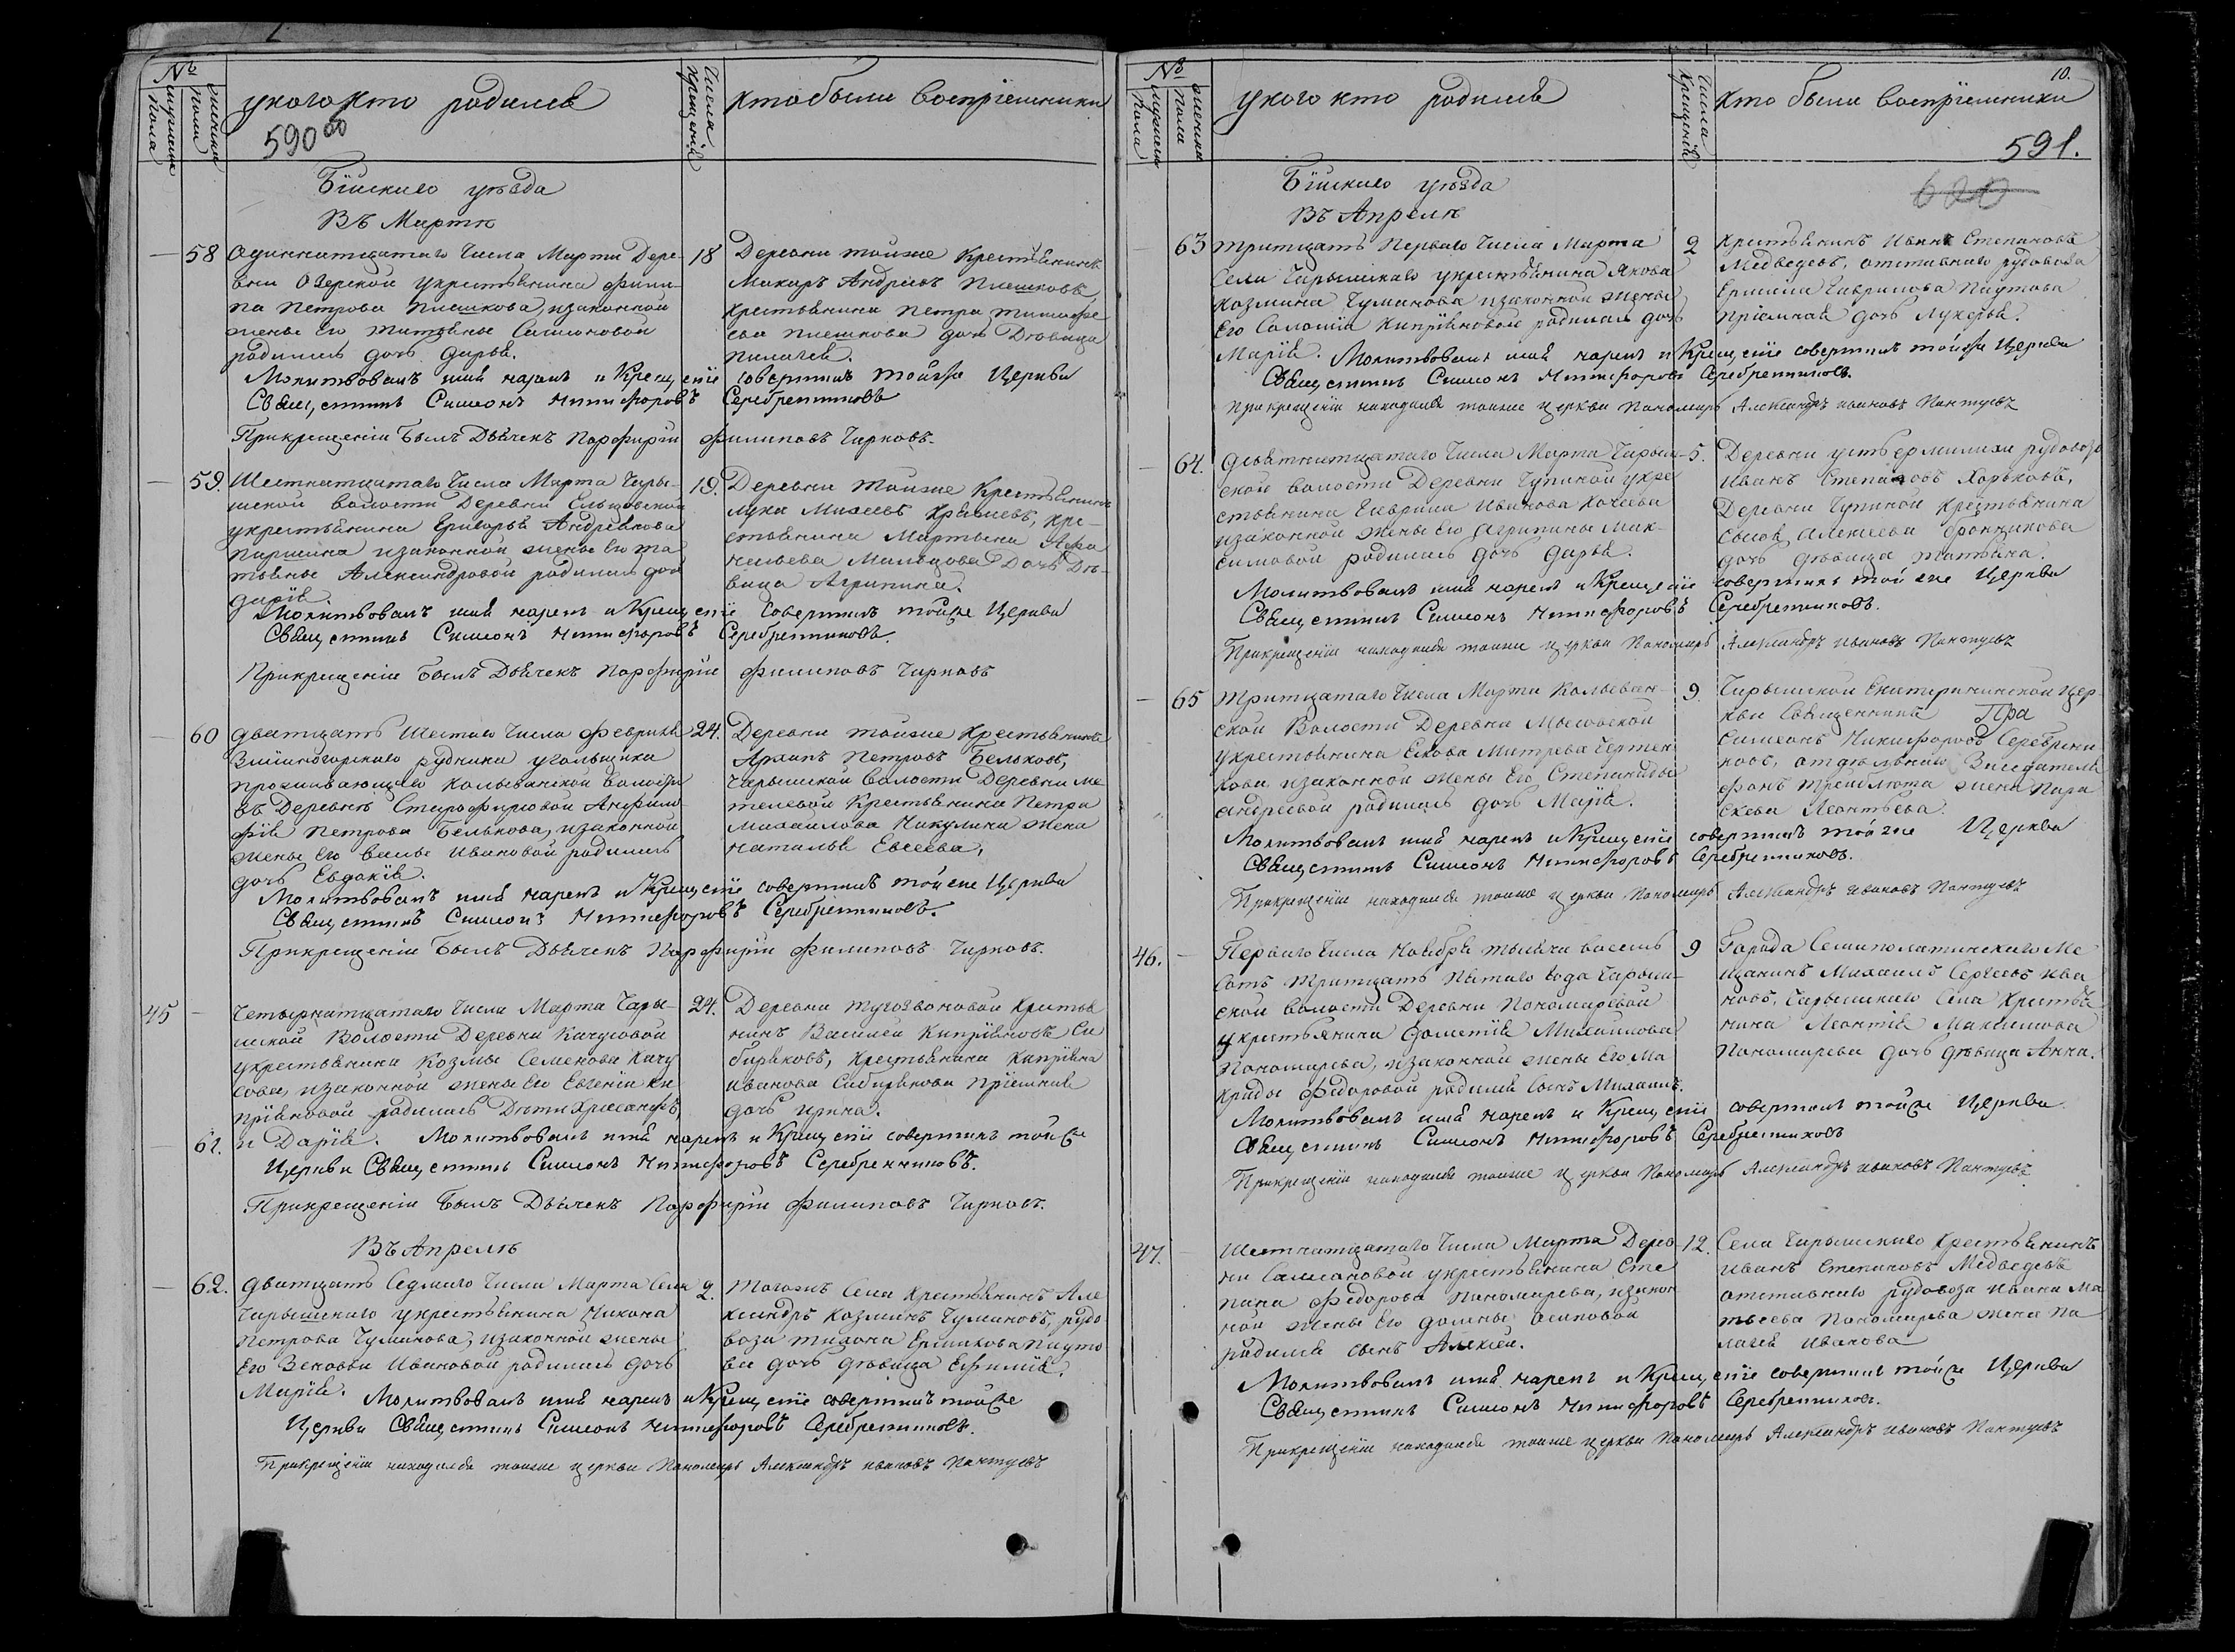 №
мужеска пола
женска пола
у кого кто родился
Числа крещенiй
кто были воспрiемники
590
Бiйскаго уѣзда
Въ Мартѣ
58 Одиннатцатаго Числа Марта Дере- 18
вни Озерской укрестьянина Фили-
па Петрова Плешкова, изаконной
жены Его Татьяны Симоновой
родилась дочь Дарья.
Деревни тойже Крестьянинъ
Макаръ Андреевъ Плешковъ,
крестьянина Петра Тимофе
ева Плешкова дочь Дѣвица
Пелагея.
Молитвовалъ имя нарекъ и Крещенiе совершилъ тойже Церкви
Священникъ Симеонъ Никифоровъ Серебренниковъ
Прикрещенiи Былъ Дьячекъ Порфирiи Филиповъ Чирковъ.
59. Шестнатцатаго Числа Марта Чары- 19.
шской волости Деревни Ельцовской
укрестьянина Григорья Андреянова
Паршина изаконной жены Его Та
тьяны Александровой родилась дочь
Дарiя
Деревни тойже Крестьянинъ
Лука Михеевъ, кре-
стьянина Мартына Афа
насьева Мальцова Дочь Дѣ-
вица Агрипина.
Молитвовалъ имя нарекъ и Крещенiе совершилъ тойже Церкви
Священникъ Симеонъ Никифоровъ Серебренниковъ.
Прикрещенiи Былъ Дьячекъ Порфирiи Филиповъ Чирковъ
60 Дватцать Шестаго Числа Февраля 24.
Змѣиногорскаго рудника угольщика
проживающаго Колыванской волости
въ Деревнѣ Старофирсовой Анфино-
Петрова Белькова, изаконной
жены Его Ивановой родилась
дочь Евдокiя.
Деревни тойже Крестьянинъ
Архипъ Петровъ Бельковъ,
Чарышской волости Деревни Ме
телевой Крестьянина Петра
Михайлова Никулина жена
Наталья Евсеева,
Молитвовалъ имя нарекъ и Крещенiе совершилъ тойже Церкви
Священникъ Симеонъ Никифоровъ Серебренниковъ.
Прикрещенiи Былъ Дьячекъ Порфирiи Филиповъ Чирковъ.
45 Четырнатцатаго Числа Марта Чары- 24.
шской Волости Деревни Качусовой
укрестьянина Козмы Семенова Качу
сова, изаконной жены Его Евгенiи Ки
прiяновой родились Дѣти Хрисанфъ
61. и Дарiя.
Деревни Тугозвоновой Крестья
нинъ Василей Кипрiяновъ Си
биряковъ, Крестьянина Кипрiяна
Иванова Сибирякова прiемная
дочь Ирина.
Молитвовалъ имя нарекъ и Крещенiе совершилъ тойже
Церкви Священникъ Симеонъ Никифоровъ Серебренниковъ.
Прикрещенiи Былъ Дьячекъ Порфирiи Филиповъ Чирковъ.
Въ Апрелѣ
62. Дватцать Седмаго Числа Марта Села 2.
Чарышскаго укрестьянина Никона
Петрова Чуманова, изаконной жены
Его Зеновьи Ивановой родилась дочь
Марiя.
Тогожъ Села Крестьянинъ Але
ксандръ Козминъ Чумановъ, рудо
воза Тихона Ермакова Пауто
ва дочь дѣвица Ефимiя.
Молитвовалъ имя нарекъ и Крещенiе совершилъ тойже
Церкви Священникъ Симеонъ Никифоровъ Серебренниковъ.
Прикрещенiи находился тоиже церкви Пономарь Александръ Ивановъ Пантуевъ
№
мужеска пола
женска пола
у кого кто родился
Числа крещенiй
кто были воспрiемники
10.
591.
600
Бiйскаго уѣзда
Въ Апрелѣ
63 Тритцать Перваго Числа Марта 2
Села Чарышскаго укрестьянина Якова
Козмина Чуманова изаконной жены
Его Соломiи Кипрiяновой родилась дочь
Марiя.
Крестьянинъ Иванъ Степановъ
Медведевъ, отставнаго рудовоза
Ермила Гаврилова Паутова
прiемная дочь Лукерья.
Молитвовалъ имя нарекъ и Крещенiе совершилъ тойже Церкви
Священникъ Симеонъ Никифоровъ Серебренниковъ.
Прикрещенiи находился тоиже церкви Пономарь Александръ Ивановъ Пантуевъ
64. Девятнатцатаго Числа Марта Чарыш- 5.
ской волости Деревни Чупиной укре
стьянина Гаврила Иванова Качеева
изаконной жены Его Агрипины Мак-
симовой родилась дочь Дарья.
Деревни устьермилихи рудовозъ
Иванъ Степановъ Харьковъ,
Деревни Чупиной Крестьянина
Сысоя Алексеева
дочь дѣвица Татьяна.
Молитвовалъ имя нарекъ и Крещенiе совершилъ тойже Церкви
Священникъ Симеонъ Никифоровъ Серебренниковъ.
Прикрещенiи находился тоиже церкви Пономарь Александръ Ивановъ Пантуевъ
65 Тритцатаго Числа Марта Колыван- 9.
ской Волости Деревни Мысовской
укрестьянина Якова Митрева Чертен
кова, изаконной жены Его Степаниды
Андреевой родилась дочь Марiя.
Чарышской Екатерининской цер-
кви Священника
Симеонъ Никифоровъ Серебрени-
ковъ, отдѣльнаго Заседателя
фонъ Трейблюта жена Пара
скева Леонтьева.
Молитвовалъ имя нарекъ и Крещенiе совершилъ тойже Церкви
Священникъ Симеонъ Никифоровъ Серебренниковъ.
Прикрещенiи находился тоиже церкви Пономарь Александръ Ивановъ Пантуевъ
46. Перваго Числа Ноября тысяча восемь 9
сотъ тритцать Пятаго года Чарыш-
ской волости Деревни Пономаревой
укрестьянина Дометiя Михаилова
Пономарева, изаконной жены Его Ма
криды Федоровой родился сынъ Михаилъ.
Города Семиполатинскаго Ме
щанинъ Михаилъ Сергеевъ Ива
новъ, Чарышскаго Села Крестья
нина Леонтiя Максимова
Пономарева дочь дѣвица Анна.
Молитвовалъ имя нарекъ и Крещенiе совершилъ тойже Церкви
Священникъ Симеонъ Никифоровъ Серебренниковъ
Прикрещенiи находился тоиже церкви Пономарь Александръ Ивановъ Пантуевъ
47. Шестнатцатаго Числа Марта Дерев- 12.
ни Салмановой укрестьянина Сте
пана Федорова Пономарева, изакон
ной жены Его Домны Осиповой
родился сынъ Алексей.
Села Чарышскаго Крестьянинъ
Иванъ Степановъ Медведевъ
отставнаго рудовоза Ивана Ма
твеева Пономарева жена Па
лагея Иванова
Молитвовалъ имя нарекъ и Крещенiе совершилъ тойже Церкви
Священникъ Симеонъ Никифоровъ Серебренниковъ.
Прикрещенiи находился тоиже церкви Пономарь Александръ Ивановъ Пантуевъ